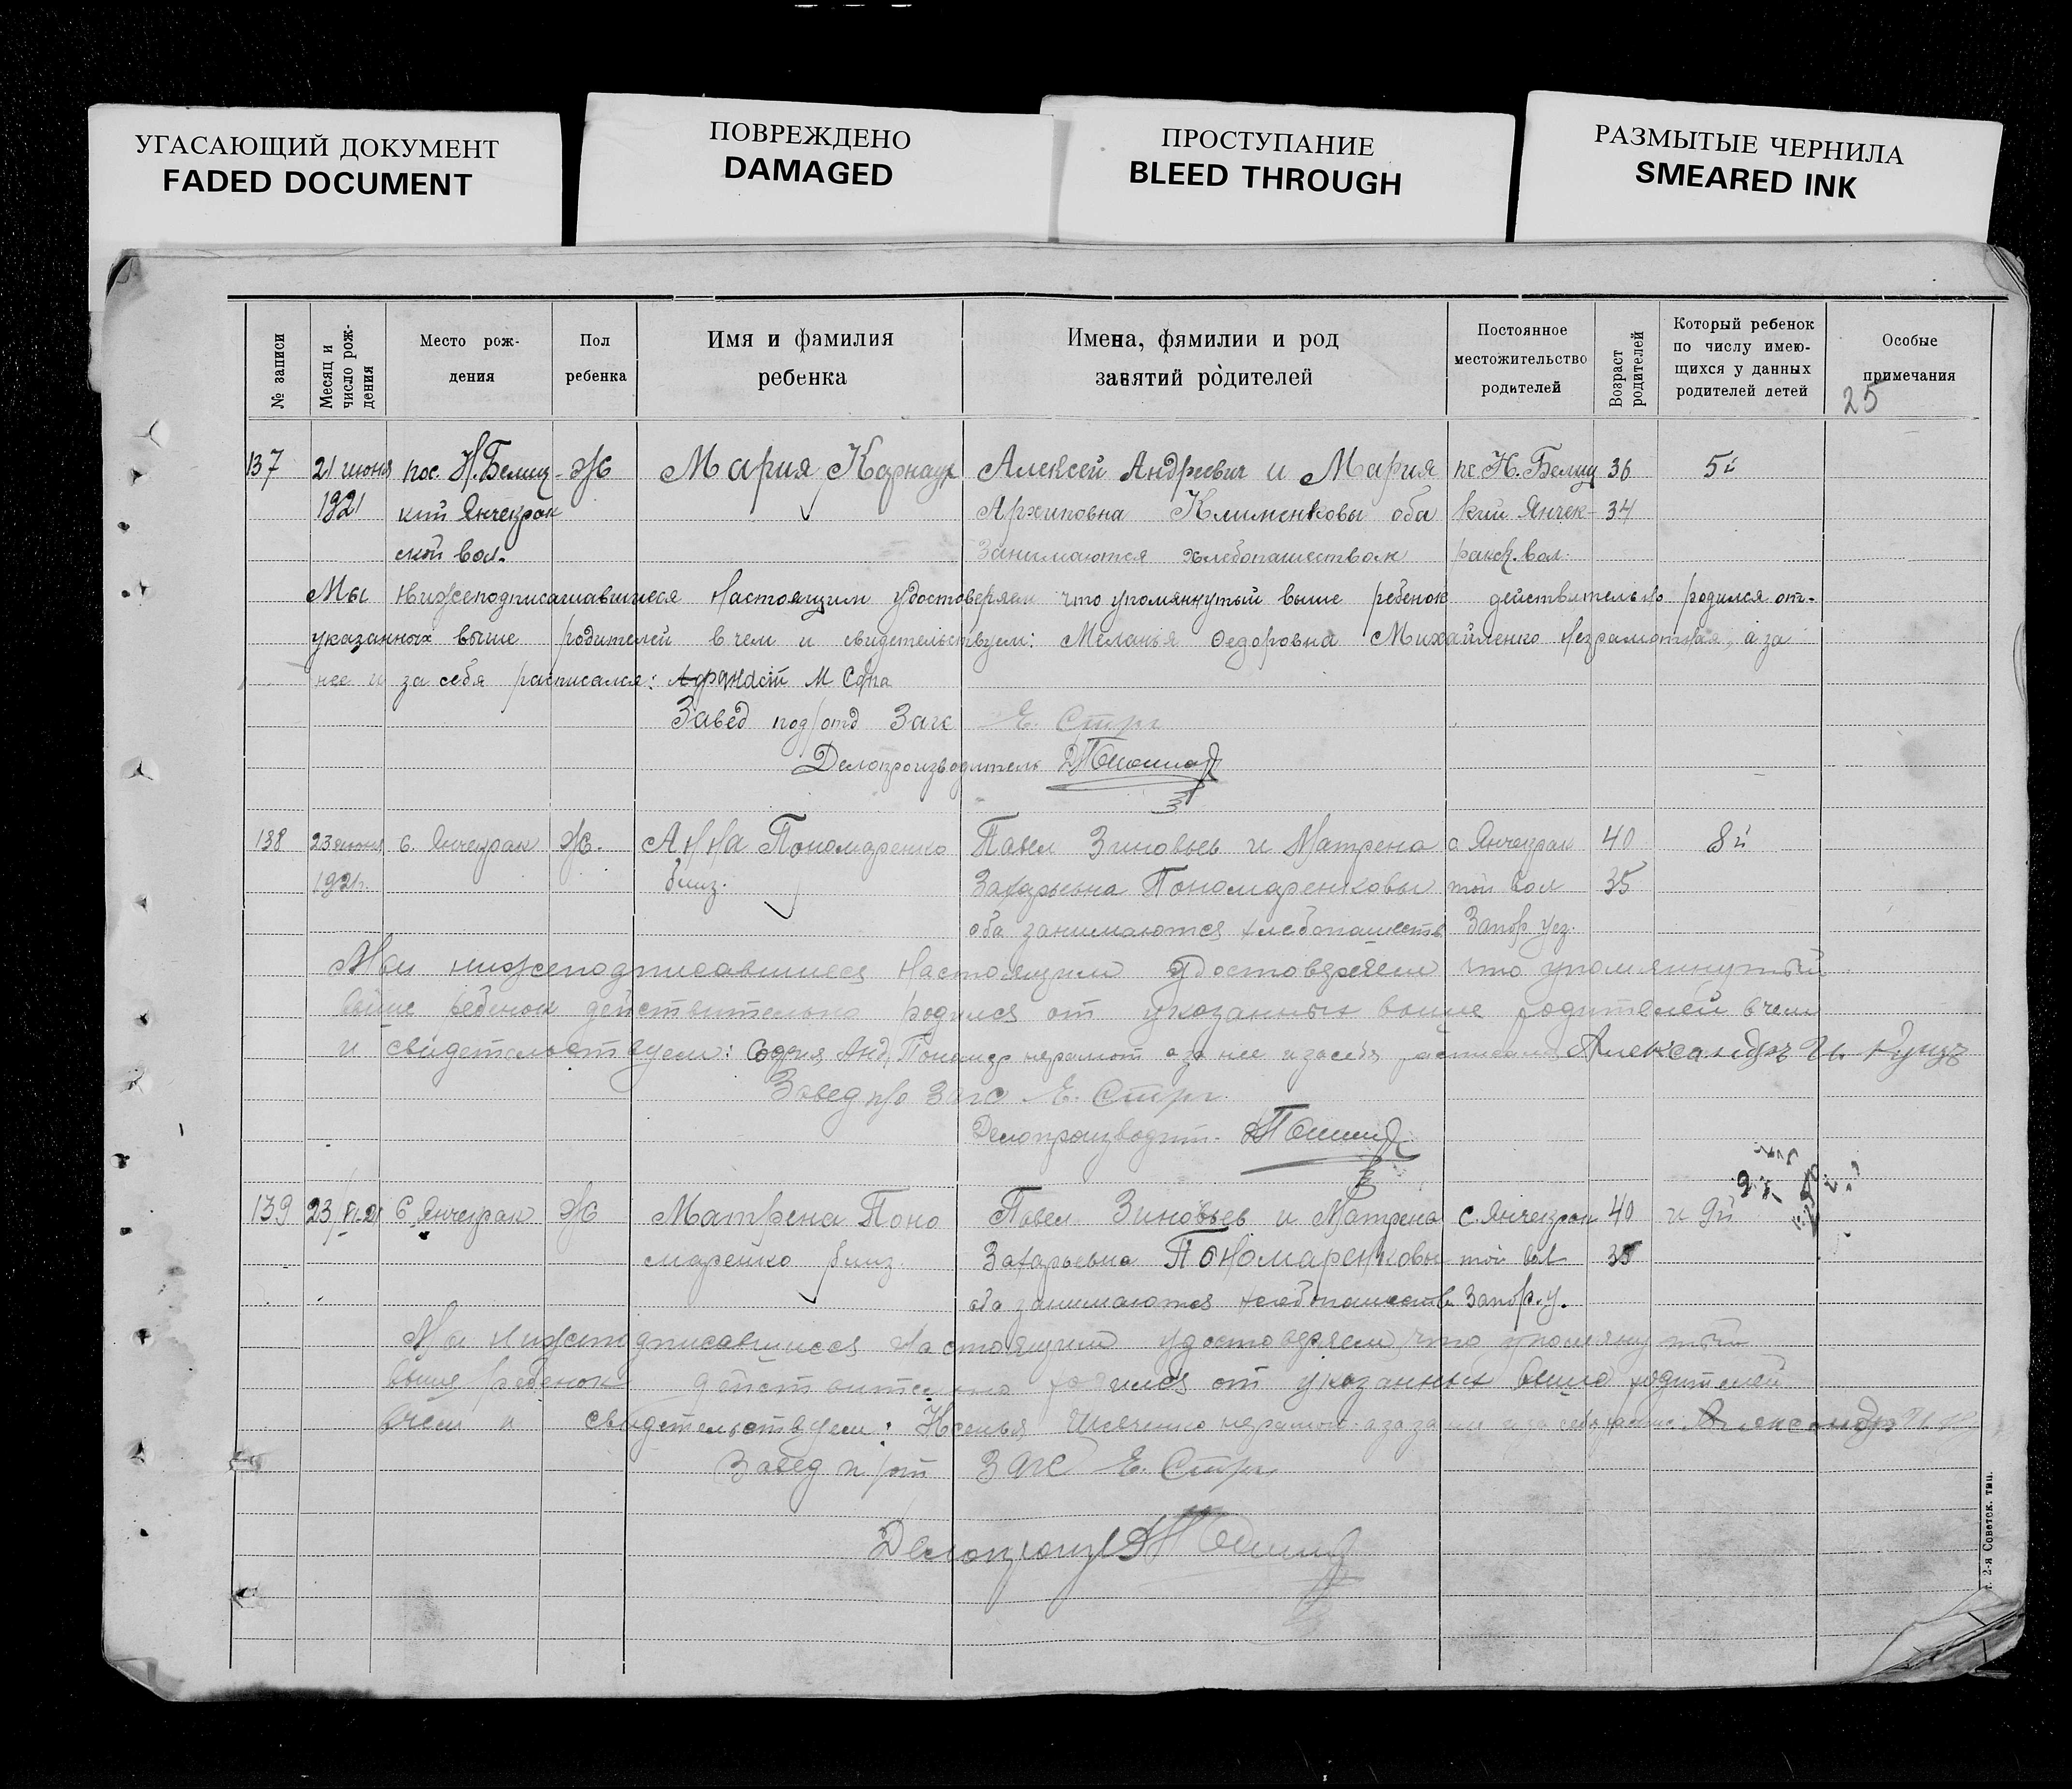 УГАСАЮЩИЙ ДОКУМЕНТ
FADED DOCUMENT
ПОВРЕЖДЕНО
DAMAGED
ПРОСТУПАНИЕ
BLEED THROUGH
РАЗМЫТЫЕ ЧЕРНИЛА
SMEARED INK
№ записи
Месяц и число рождения
Место рож-
дения
Пол
ребенка
Имя и фамилия
ребенка
Имена, фямилии и род
занятий родителей
Постоянное
местожительство
родителей
Возраст
родителей
Который ребенок
по числу имею-
щихся у данных
родителей детей
Особые
примечания
25
137 21 июня пос. Н. Белиц- Ж Мария Карнаух Алексей Андреевич и Мария пс. Н. Белиц 36 5й
1921 кий Янчекрак Архиповна оба кий Янчек- 34
ской вол. Занимаются хлебопашеством ракск. вол.
Мы нижеподписавшиеся настоящим удостоверяем что упомянутый выше ребенок действительно родился от
указанных выше родителей в чем и свидетельствуем: Меланья Федоровна Михайленко неграмотная, а за
нее и за себя расписался:
Завед под/отд Загс Е. Стри
Делопроизводитель
138 23 июня с. Янчекрак Ж. Анна Пономаренко Павел Зиновьев и Матрена с. Янчекрак 40 8й
1921г. близ. Захарьевна Пономаренковы той вол 35
оба занимаются хлебопашеств Запор уез.
Мы нижеподписавшиеся настоящим удостоверяем что упомянутый
выше ребенок действительно родился от указанных выше родителей в чем
и свидетельствуем: София Анд. Пономар неграмот а за нее и за себя расписалс Александръ
Завед п/о Загс Е. Стри
Делопроизводит.
139 23/VI-21 с. Янчекрак Ж Матрена Поно Павел Зиновьев и Матрена с. Янчекрак 40 и 9й
маренко близ. Захарьевна Пономаренковы той вол 35
оба занимаются хлебопашеств Запор. у.
Мы нижеподписавшиеся настоящим удостоверяем, что упомянутый
выше ребенок действительно родился от указанных выше родителей
в чем и свидетельствуем: Ксенья неграмот. Александръ
Завед п/от Загс Е. Стри
Делопроизв
2-я Советск. тип.